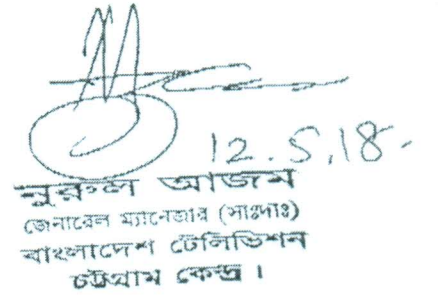 12.5.18.
নুরুল আজম
জেনারেল ম্যানেজার (সাঃদাঃ)
বাংলাদেশ টেলিভিশন
চট্টগ্রাম কেন্দ্র।